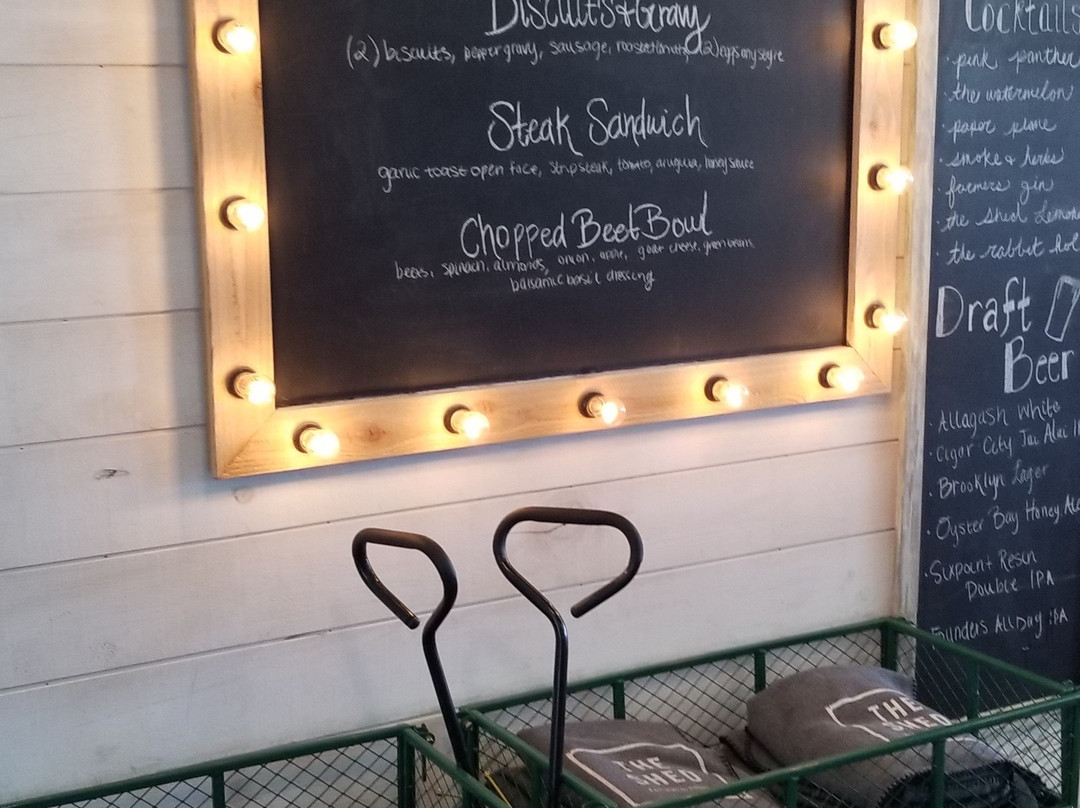 Biscuits & Gravy
(2) biscuits, pepper gravy, sausage, roasted tomato, (2) eggs any style
Steak Sandwich
garlic toast open face, strip steak, tomato, arugula, honey sauce
Chopped Beet Bowl
beets, spinach, almonds, onion, apple, goat cheese, green beans,
balsamic basil dressing
Cocktails
· pink panther
· the watermelon
· paper plane
· smoke & herbs
· farmers gin
· the shed Lemona
· the rabbit hol
Draft
Beer
· Allagash White
· Cigar City Jai Alai I
· Brooklyn Lager
· Oyster Bay Honey Ale
· Sixpoint Resin
Double IPA
Founders All Day IPA
THE
SHED
THE
SHED